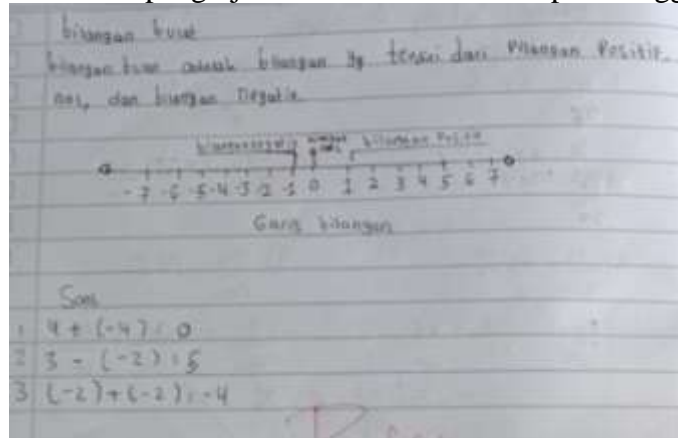 bilangan bulat
bilangan bulat adalah bilangan yg terdiri dari bilangan Positif.
nol, dan bilangan negatif
bilangan negatif bilangan nol bilangan Positif
-7 -6 -5 -4 -3 -2 -1 0 1 2 3 4 5 6 7
Garis bilangan
Soal
1 4 + (-4) = 0
2 3 - (-2) = 5
3 (-2) + (-2) = -4